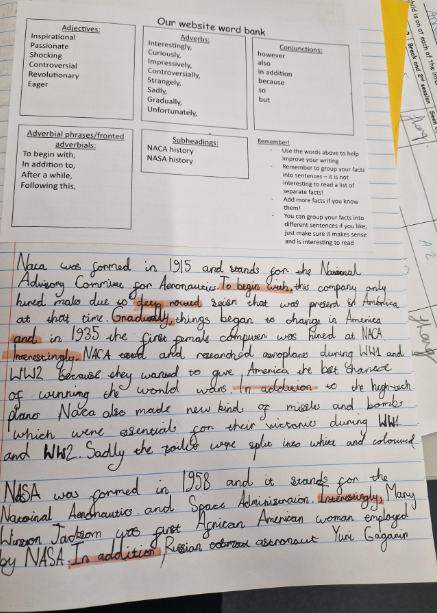 Our website word bank
Adjectives:
Inspirational
Passionate
Shocking
Controversial
Revolutionary
Eager
Adverbs:
Interestingly,
Curiously,
Impressively,
Controversially,
Strangely,
Sadly,
Gradually,
Unfortunately,
Conjunctions:
however
also
in addition
because
so
but
Adverbial phrases/fronted
adverbials:
To begin with,
In addition to,
After a while,
Following this,
Subheadings:
NACA history
NASA history
Remember!
- Use the words above to help
improve your writing
- Remember to group your facts
into sentences – it is not
interesting to read a list of
separate facts!
- Add more facts if you know
them!
- You can group your facts into
different sentences if you like,
just make sure it makes sense
and is interesting to read
Naca was formed in 1915 and stands for the National
Advisory Committe for Aeronautics. To begin with, this company only
hired males due to deep rooted that was present in America
at that time. Gradually, things began to change in America
and in 1935 the first female computer was hired at NACA.
Interestingly, NACA and researched aeroplanes during WW1 and
WW2 because they wanted to give America the best
of winning the world wars. In addition to the high-tech
planes Naca also made new kind of missile and bombs
which were essential for their during WW1
and WW2. Sadly the were split into white and coloured.
NASA was formed in 1958 and it stands for the
Aeronautics and Space . Interestingly, Mary
Winston Jackson was first African American woman employed
by NASA. In addition, Russian astronaut Yuri Gagarin